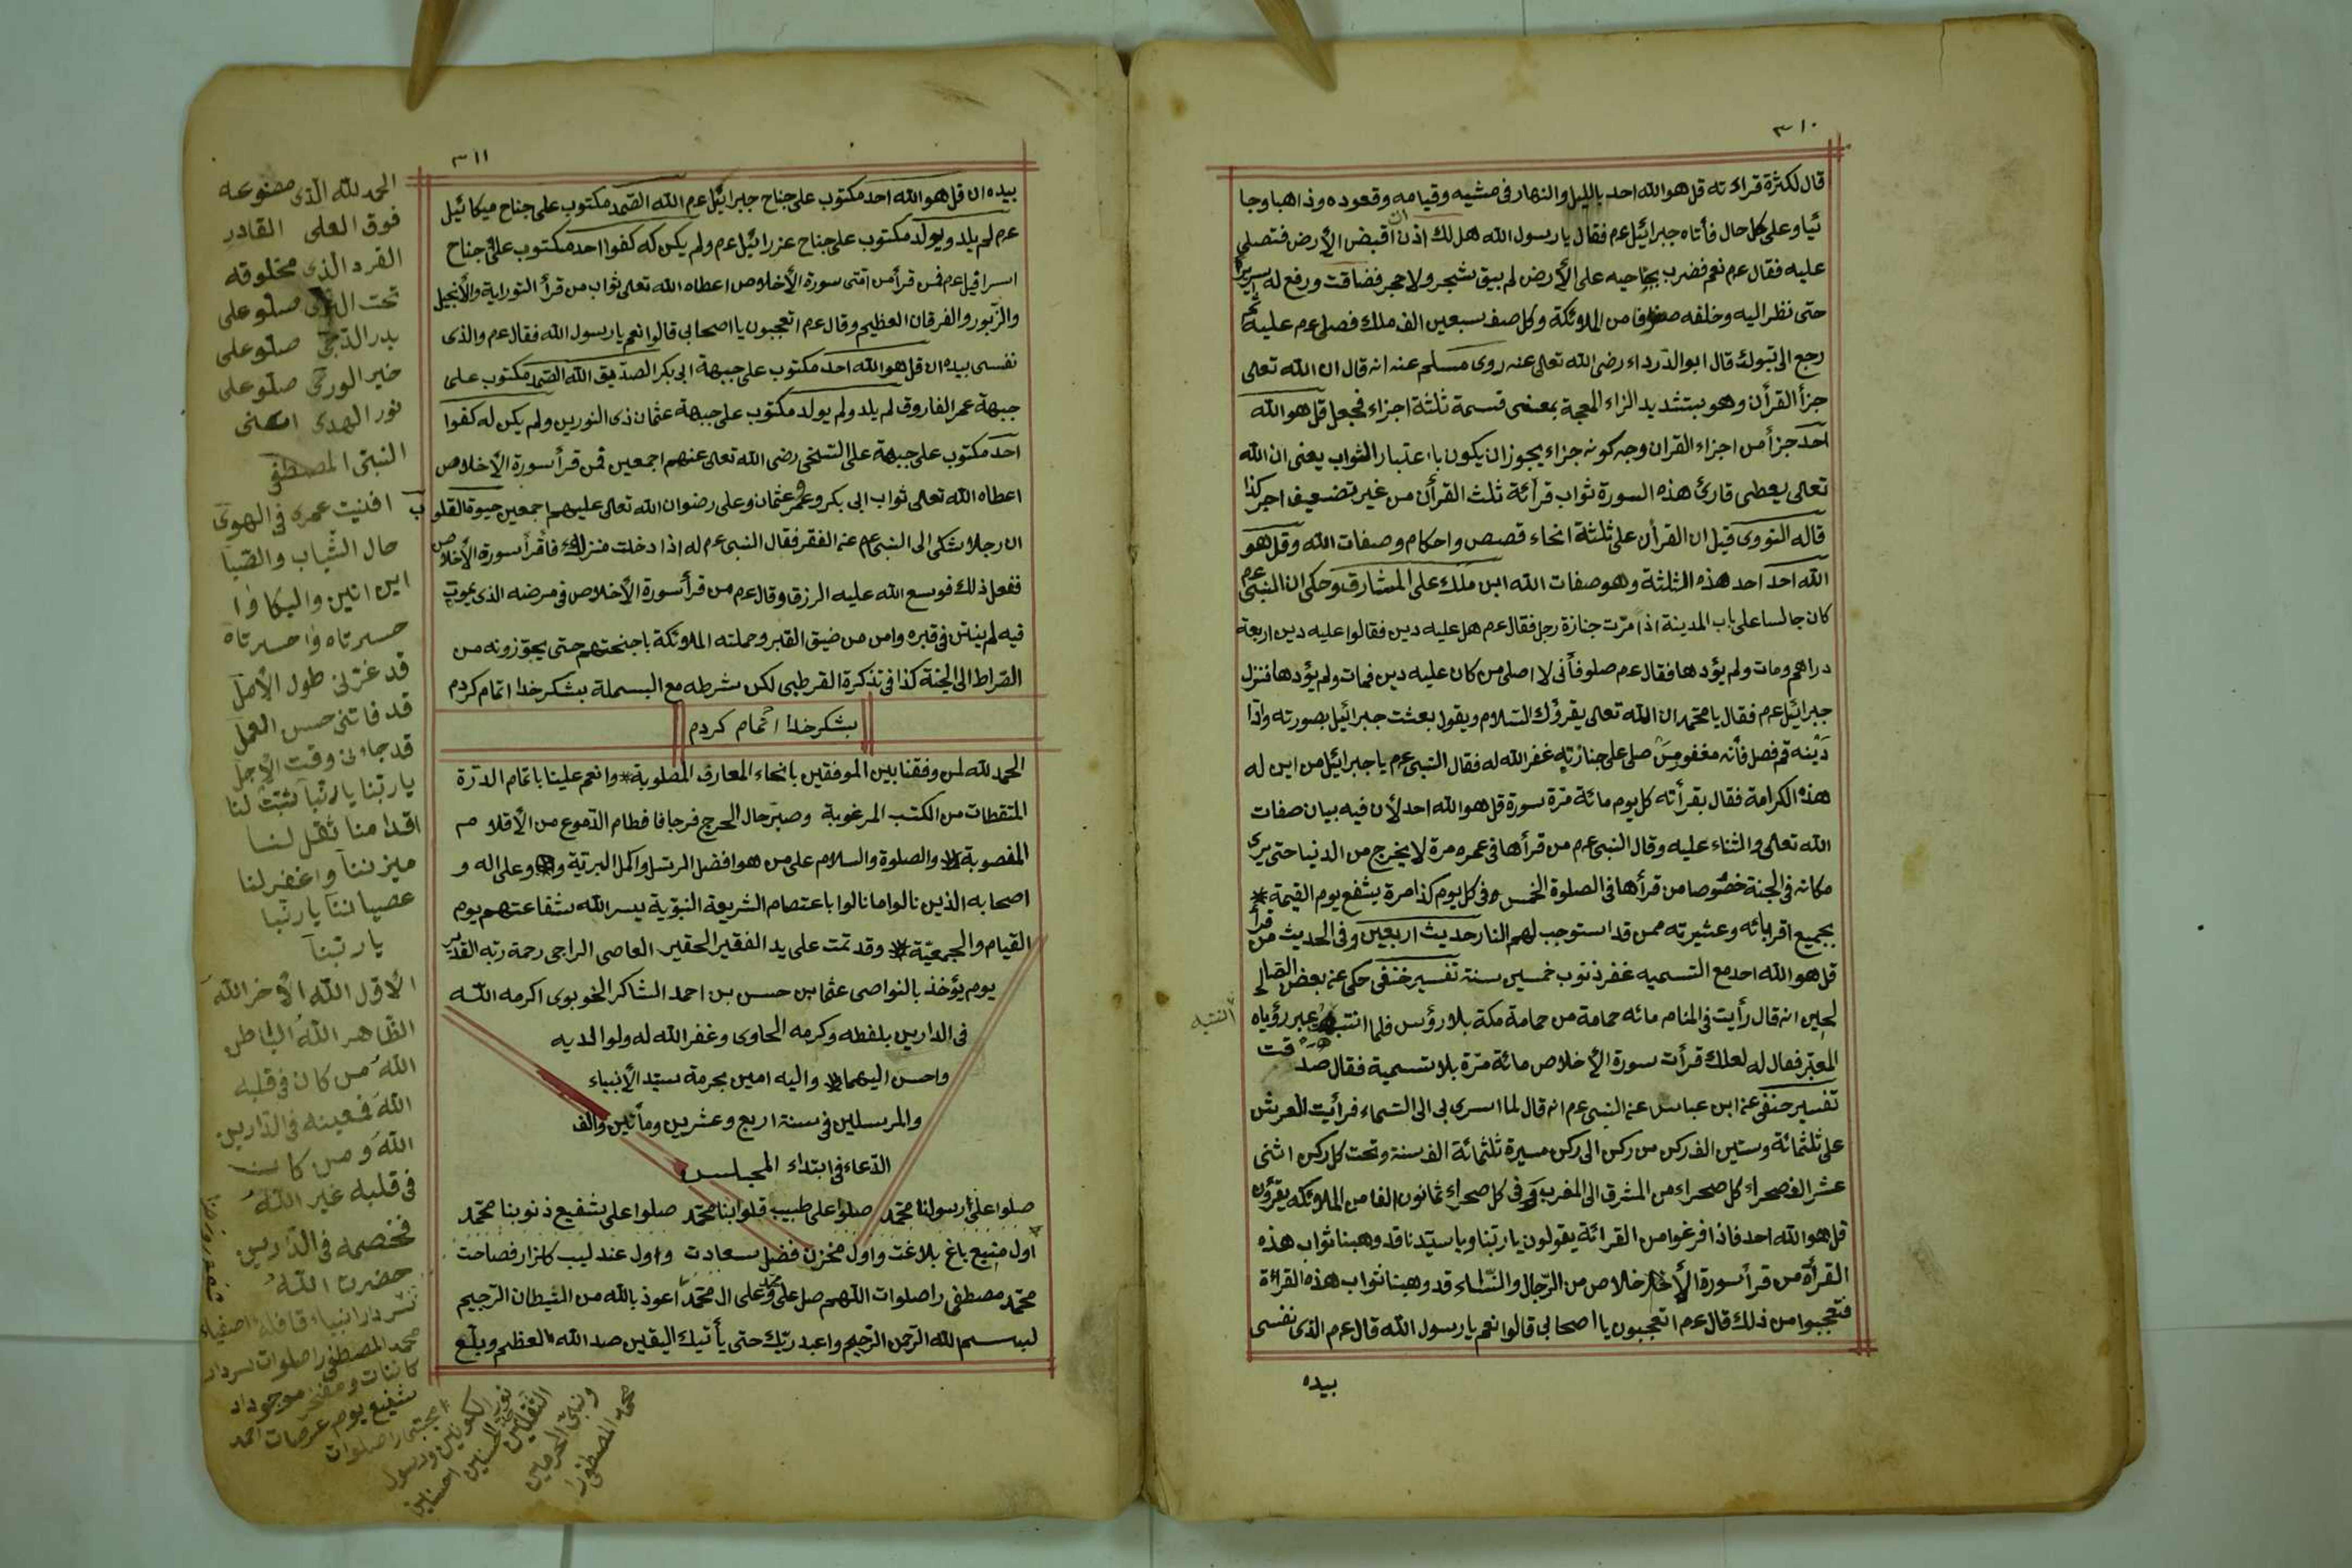 ٣١٠
قال لكثرة قراءته قل هو الله احد بالليل والنهار فى مشيه وقيامه وقعوده وذاهبا وجا
ئيا وعلى كل حال فأتاه جبرائيل عم فقال يا رسول الله هل لك ان اذن اقبض الأرض فتصلى
عليه فقال عم نعم فضرب بجناحيه على الأرض لم يبق شجر ولا حجر فضاقت ورفع له سريره
حتى نظر اليه وخلفه صفوفا من الملائكة وكل صف سبعين الف ملك فصلى عم عليه ثم
رجع الى تبوك قال ابو الدرداء رضى الله تعالى عنه روى مسلم عنه انه قال ان الله تعالى
جزأ القرأن وهو بتشديد الزاء المعجمة بمعنى قسمة ثلثة اجزاء فجعل قل هو الله
احد جزأ من اجزاء القران وجه كونه جزاء يجوز ان يكون با اعتبار الثواب يعنى ان الله
تعالى يعطى قارئ هذه السورة ثواب قرأئة ثلث القرأن من غير تضعيف اجر كذا
قاله النووى قيل ان القرأن على ثلثة انحاء قصص واحكام وصفات الله وقل هو
الله احد احد هذه الثلثة وهو صفات الله ابن ملك على المشارق وحكى ان النبى عم
كان جالسا على باب المدينة اذا مرّت جنازة رجل فقال عم هل عليه دين فقالوا عليه دين اربعة
دراهم ومات ولم يؤدها فقال عم صلو فأنى لا اصلى من كان عليه دين فمات ولم يؤدها فنزل
جبرائيل عم فقال يا محمد ان الله تعالى يقرؤك السلام ويقول بعثت جبرائيل بصورته واذا
دينه قم فصل فأنه مغفور من صلى على جنازته غفر الله له فقال النبى عم يا جبرائيل من اين له
هذه الكرامة فقال بقرأته كل يوم مائة مرّة سورة قل هو الله احد لأن فيه بيان صفات
الله تعالى والثناء عليه وقال النبى عم من قرأها فى عمره مرة لا يخرج من الدنيا حتى يرى
مكانه فى الجنة خصوصا من قرأها فى الصلوة الخمس وفى كل يوم كذا مرة يشفع يوم القيمة
بجميع اقربائه وعشيرته ممن قد استوجب لهم النار حديث اربعين وفى الحديث من قرأ
قل هو الله احد مع التسميه غفر ذنوب خمسين سنة تفسير حنفى حكى عن بعض الصا
لحين انه قال رأيت فى المنام مائه حمامة من حمامة مكة بلا رؤس فلما انتبهت عبر رؤياه
المعبّر فقال له لعلك قرأت سورة الأخلاص مائة مرّة بلا تسمية فقال صدقت
تفسير حنفى عن ابن عباس عن النبى عم انه قال لما اسرى بى الى السماء فرأيت العرش
على ثلثمائة وستين الف ركن من ركن الى ركن مسيرة ثلثمائة الف سنة وتحت كل ركن اثنى
عشر الف صحراء كل صحراء من المشرق الى المغرب وفى كل صحراء ثمانون الفا من الملائكه يقرؤن
قل هو الله احد فاذا فرغوا من القرائة يقولون يا ربّنا ويا سيّدنا قد وهبنا ثواب هذه
القرأة من قرأ سورة الأخلاص من الرّجال والنّساء قد وهبنا ثواب هذه القرائة
فتعجبوا من ذلك قال عم اتعجبون يا اصحابى قالوا نعم يا رسول الله قال عم الذى نفسى
بيده
٣١١
بيده ان قل هو الله احد مكتوب على جناح جبرائيل عم الله الصّمد مكتوب على جناح ميكائيل
عم لم يلد ويولد مكتوب على جناح عزرائيل عم ولم يكن له كفوا احد مكتوب على جناح
اسرافيل عم فمن قرأ من امّتى سورة الأخلاص اعطاه الله تعالى ثواب من قرأ التوراية والأنجيل
والزّبور والفرقان العظيم وقال عم اتعجبون يا اصحابى قالوا نعم يا رسول الله فقال عم والذى
نفسى بيده ان قل هو الله احد مكتوب على جبهة ابى بكر الصدّيق الله الصّمد مكتوب على
جبهة عمر الفاروق لم يلد ولم يولد مكتوب على جبهة عثمان ذى النورين ولم يكن له كفوا
احد مكتوب على جبهة على السّخى رضى الله تعالى عنهم اجمعين فمن قرأ سورة الأخلاص
اعطاه الله تعالى ثواب ابى بكر وعمر وعثمان وعلى رضوان الله تعالى عليهم اجمعين حيوة القلوب
ان رجلا شكى الى النبى عم عن الفقر فقال النبى عم له اذا دخلت منزلك فأقرأ سورة الأخلاص
ففعل ذلك فوسع الله عليه الرزق وقال عم من قرأ سورة الأخلاص فى مرضه الذى يموت
فيه لم ينتن فى قبره وامن من ضيق القبر وحملته الملائكة باجنحتهم حتى يجوّزونه من
القراط الى الجنة كذا فى تذكرة القرطبى لكن بشرطه مع البسملة بشكر خدا اتمام كردم
بشكر خدا اتمام كردم
الحمد لله لمن وفقنا بين الموفقين بانحاء المعارف المطلوبة وانعم علينا باتمام الدرّة
المتقطات من الكتب المرغوبة وصبّر حال الحرج فرجا فا فطام الدّموع من الأقلام
المغصوبة والصلوة والسلام على من هو افضل الرسل واكمل البريّة وعلى اله و
اصحابه الذين نالوا ما نالوا باعتصام الشريعة النبوّية يسر الله شفاعتهم يوم
القيام والجمعيّة وقد تمت على يد الفقير الحقير العاصى الراجى رحمة ربّه القدير
يوم يؤخذ بالنواصى عثمان بن حسن بن احمد الشاكر الخوبوى اكرمه الله
فى الدارين بلفطه وكرمه الحاوى وغفر الله له ولوالديه
واحسن اليهما واليه امين بحرمة سيّد الأنبياء
والمرسلين فى سنة اربع وعشرين ومأتين والف
الدّعاء فى ابتداء المجلس
صلوا على رسولنا محمّد صلوا على طبيب قلوبنا محمّد صلوا على شفيع ذنوبنا محمّد
اول منبع باغ بلاغت واول مخزن فضل سعادت واول عندليب كلزار فصاحت
محمّد مصطفى را صلوات اللّهم صل على محمد وعلى ال محمّد اعوذ بالله من الشيطان الرّجيم
بسم الله الرّحمن الرّحيم واعبد ربّك حتى يأتيك اليقين صد الله العظيم وبلّغ
الحمد لله الذى مصنوعه
فوق العلى القادر
الفرد الذى مخلوقه
تحت الثرى صلّو على
بدر الدّجى صلّو على
خير الورى صلّو على
نور الهدى اعنى
النبىّ المصطفى
افنيت عمرى فى الهوى
حال الشّباب والصّبا
اين انين والبكا وا
حسرتاه وا حسرتاه
قد غرّنى طول الأمل
قد فاتنى حسن العمل
قد جاءنى وقت الأجل
يا ربّنا يا ربّنا ثبّت لنا
اقدامنا ثقل لنا
ميزننا واغفر لنا
عصياننا يا ربّنا
يا ربّنا
الأوّل الله الأخر الله
الظّاهر الله الباطن
الله من كان فى قلبه
الله فمعينه فى الدّارين
الله ومن كان
فى قلبه غير الله
فخصمه فى الدّارين
حضرت الله
سردار انبياء قافله اصفياء
محمد المصطفى را صلوات سردار
كائنات ومفخر موجودات
شفيع يوم عرصات احمد
مجتبى را صلوات
نور الكونين ورسول
الثقلين
ونبىّ الحرمين
محمد المصطفى را